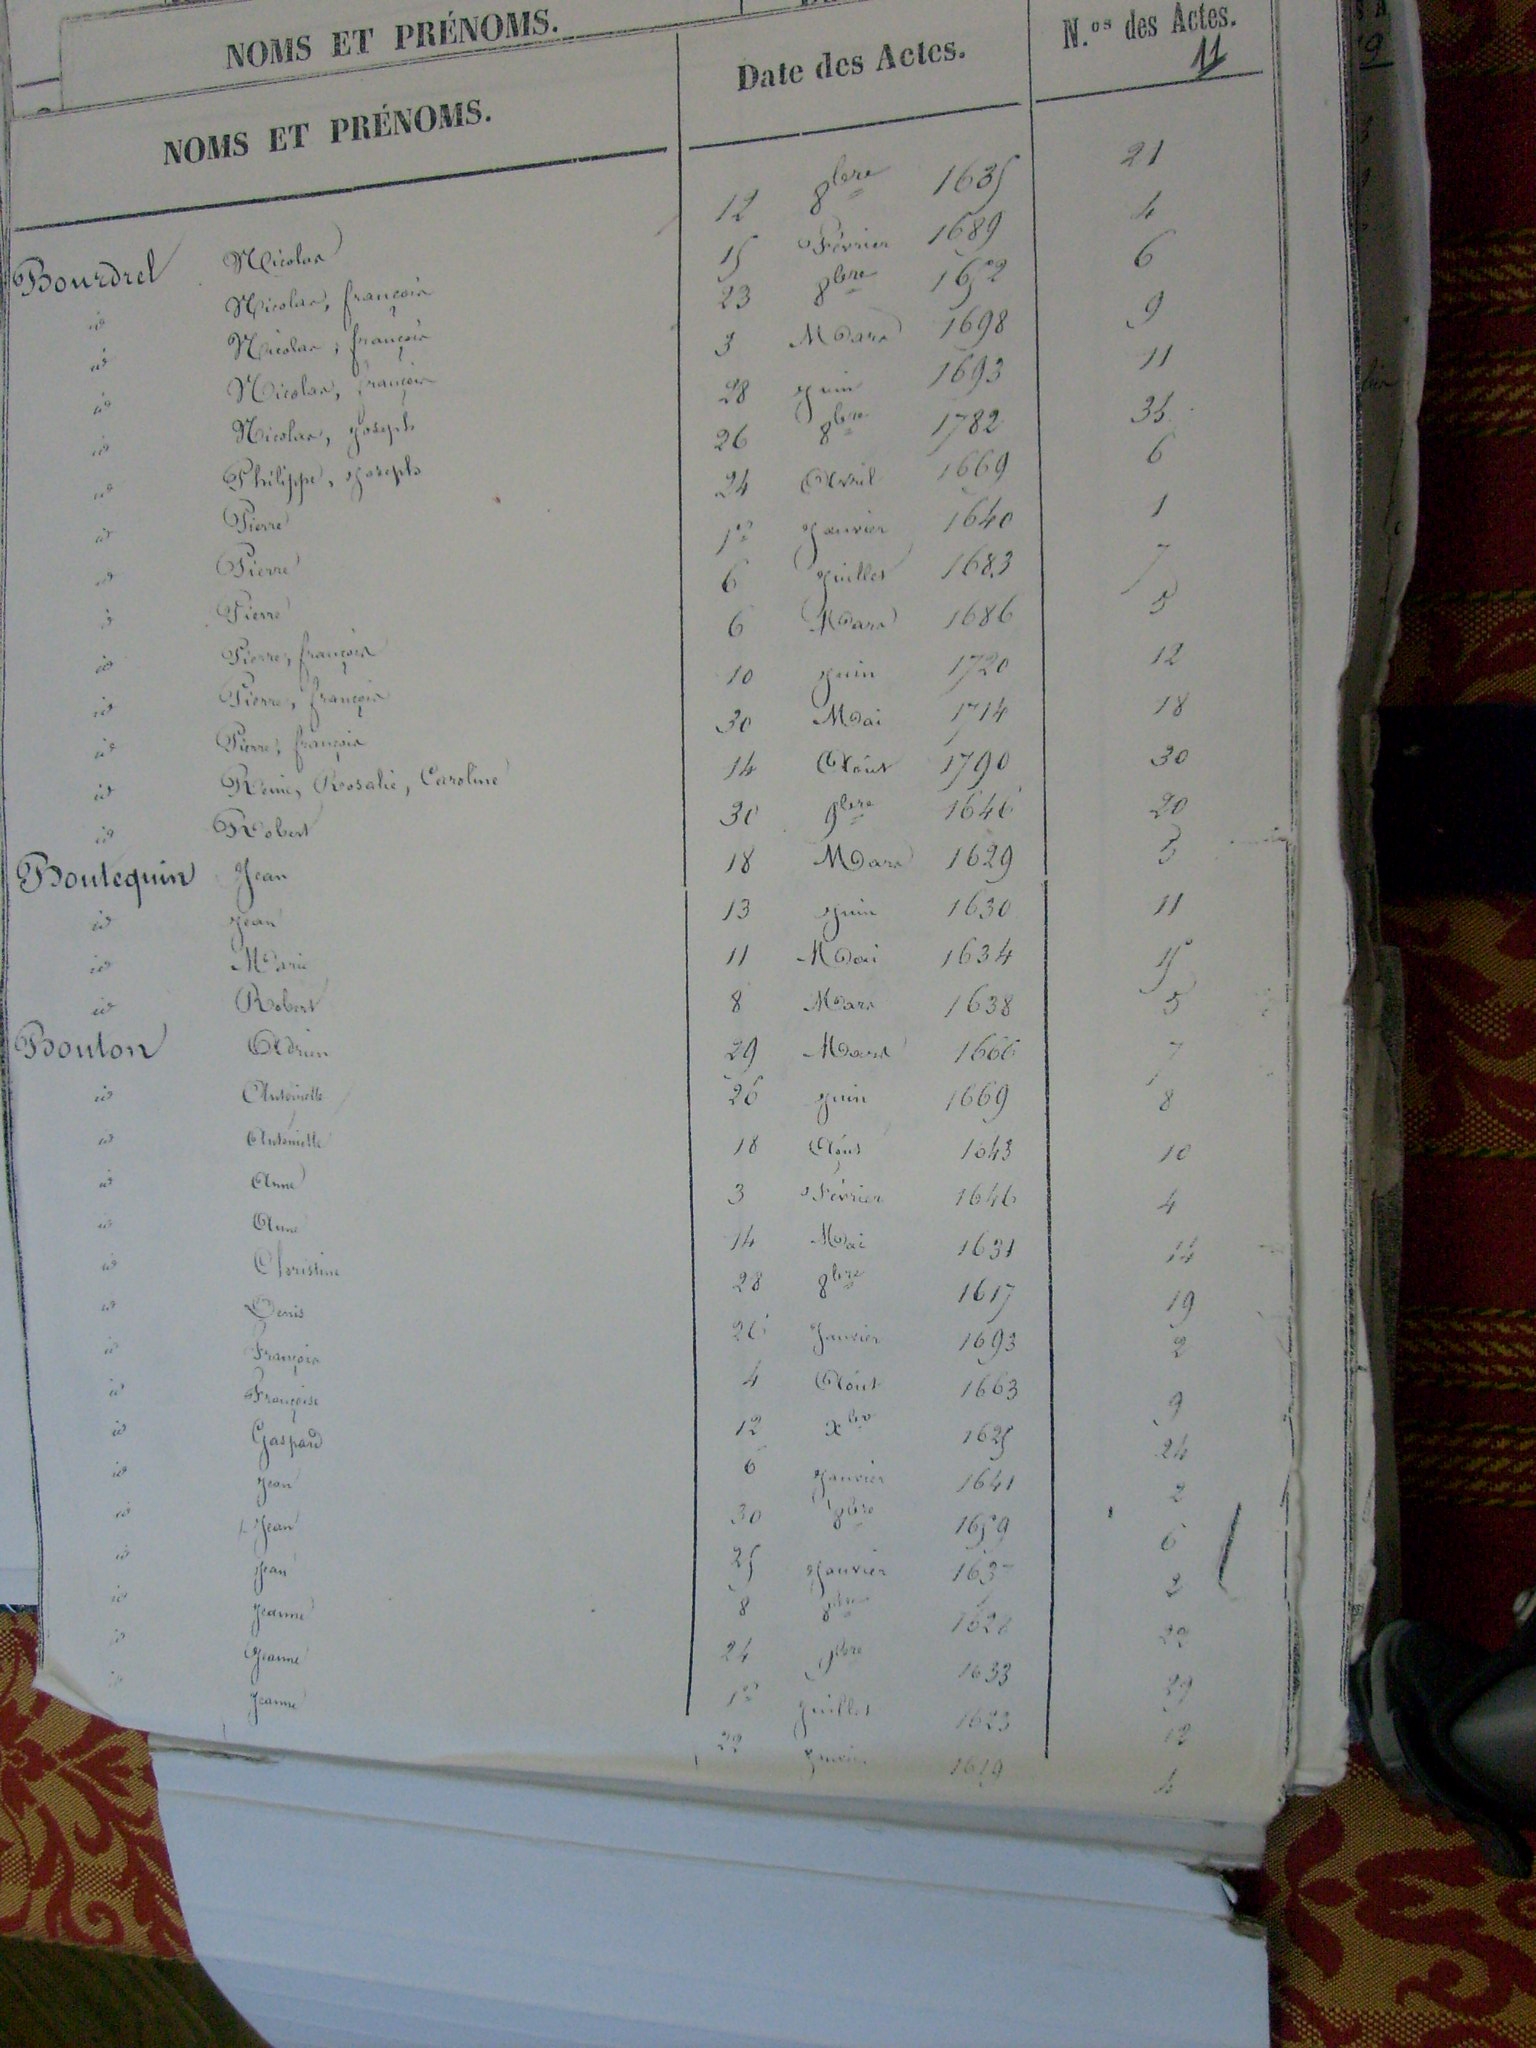 NOMS ET PRÉNOMS.
NOMS ET PRÉNOMS. Date des Actes. N.os des Actes.
11
Bourdrel Nicolas 12 8bre 1635 21
id Nicolas, françois 15 Février 1689 4
id Nicolas, françois 23 8bre 1652 6
id Nicolas, françois 3 Mars 1698 9
id Nicolas, Joseph 28 Juin 1693 11
id Philippe, Joseph 26 8bre 1782 34
id Pierre 24 Avril 1669 6
id Pierre 1er Janvier 1640 1
id Pierre 6 Juillet 1683 7
id Pierre, françois 6 Mars 1686 5
id Pierre, françois 10 Juin 1720 12
id Pierre, françois 30 Mai 1714 18
id Reine, Rosalie, Caroline 14 Août 1790 30
id Robert 30 9bre 1646 20
Boutequin Jean 18 Mars 1629 5
id Jean 13 Juin 1630 11
id Marie 11 Mai 1634 15
id Robert 8 Mars 1638 5
Bouton Adrien 29 Mars 1666 7
id Antoinette 26 Juin 1669 8
id Antoinette 18 Août 1643 10
id Anne 3 Février 1646 4
id Anne 14 Mai 1631 14
id Christine 28 8bre 1617 19
id Denis 26 Janvier 1693 2
id François 4 Août 1663 9
id Françoise 12 Xbre 1625 24
id Gaspard 6 Janvier 1641 2
id Jean 30 1659 6
id Jean 25 Janvier 2
id Jean 8 22
id Jeanne 24 9bre 1633 29
id Jeanne 1er Juillet 1623 12
id Jeanne 22 1619 4